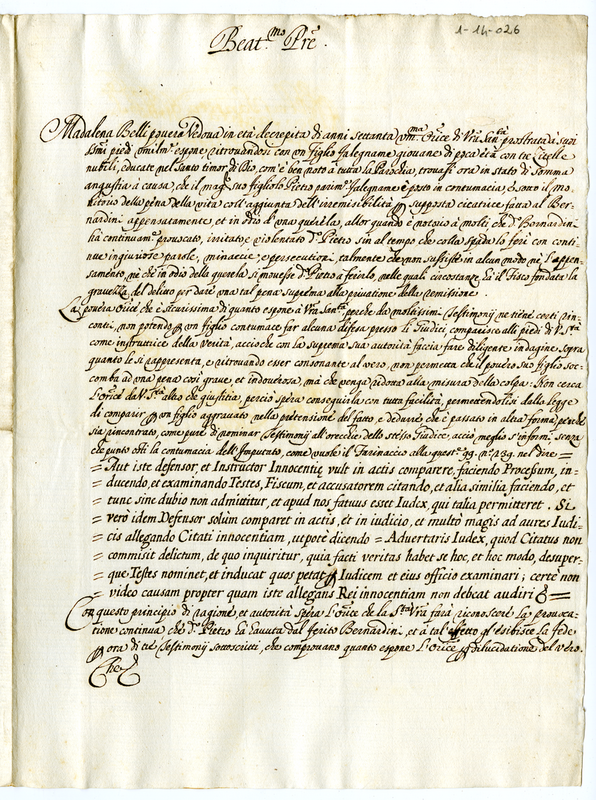 1-14-026
Beat.mo Prē.
Madalena Belli povera Vedova in età decrepita di anni settanta um.ma Ōrice di Vrā San.tà prostrata à suoi
ss.mi piedi umilm.e espone, ritrovandosi con un figlio falegname giovane di poca età con tre Citelle
nubili, educate nel Santo timor di Dio, com'è ben noto à tutta la Parochia, trovasi ora in stato di Somma
angustia à causa, che il mag.re suo figliolo Pietro parim.e falegname è posto in contumacia, e sotto il mo-
nitorio della pena della vita coll'aggiunta dell'irremisibilità p supposta cicatrice fatta al Ber-
nardini appensatamente, et in odio d'una querela, allor quando è notorio à molti, che d.o Bernardini
hà continuam.e provocato, irritato, e violentato d.o Pietro sin al tempo che colla Spada lo ferì con conti-
nue ingiuriose parole, minaccie, e persecutioni, talmente che non sussiste in alcun modo nè l'appen-
samento, nè che in odio della querela si movesse d.o Pietro à ferirlo, nelle quali circostanze hà il Fisco fondata la
gravezza del delitto per dare una tal pena suprema alla privatione della remissione.
La povera Ōrice che è sicurissima di quanto espone à Vrā San.tà, perche da moltissimi Testimonij ne tiene certi rin-
contri, non potendo p un figlio contumace far alcuna difesa presso li Giudici, comparisce alli piedi di V. S.tà
come infruttrice della verità, accioche con la Suprema Sua autorità faccia fare diligente indagine sopra
quanto le si rappresenta, e ritrovando esser consonante al vero, non permetta che il povero suo figlio soc-
comba ad una pena così grave, et indoverosa, mà che venga ridotta alla misura della colpa. Non cerca
l'Ōrice da V. S.tà altro che giustitia, perciò spera conseguirla con tutta facilità, permettendosi dalla legge
di comparir p un figlio aggravato nella pretensione del fatto, e dedurre che è passato in altra forma, perche
sia rincontrato, come pure di nominar Testimonij all'orecchie dello stesso Giudice, acciò meglio s'informi, senza
che punto osti la contumacia dell'Imputato, come vuole il Farinaccio alla quest. 99. n.o 289. nel dire =
= Aut iste defensor, et Instructor Innocentiæ vult in actis comparere, faciendo Processum, in-
= ducendo, et examinando Testes, Fiscum, et accusatorem citando, et alia similia faciendo, et
= tunc sine dubio non admittitur, et apud nos fatuus esset Iudex, qui talia permitteret. Si
= verò idem Defensor solùm comparet in actis, et in iudicio, et multò magis ad aures Iudi-
= cis allegando Citati innocentiam, utpotè dicendo = Advertaris Iudex, quod Citatus non
= commisit delictum, de quo inquiritur, quia facti veritas habet se hoc, et hoc modo, desuper-
= que Testes nominet, et inducat quos petat p Iudicem et eius officio examinari; certè non
= video causam propter quam iste allegans Rei innocentiam non debeat audiri =
Con questo principio di ragione, et autorità Spera l'Ōrice che la S.tà Vrā farà riconoscere la provoca-
tione continua che d.o Pietro hà havuta dal ferito Bernardini, et à tal'effetto s'esibisce la fede
p ora di trè Testimonij sottoscritti, che comprovano quanto espone l'Ōrice p dilucidatione del vero.
Che